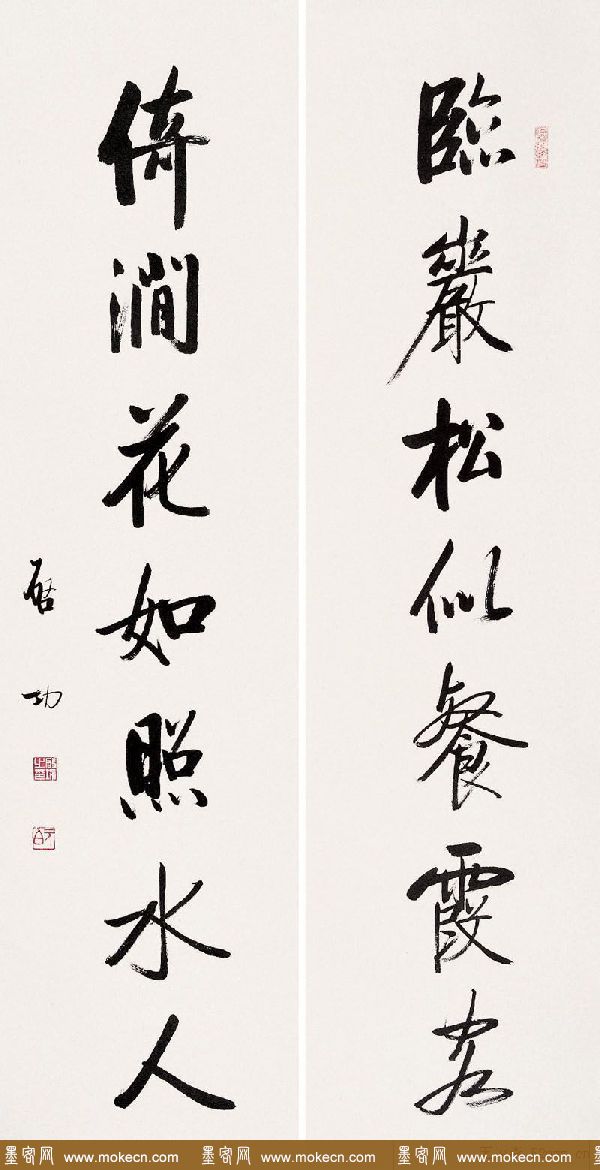 臨巖松似餐霞客
倚澗花如照水人
啟功
墨客网 www.mokecn.com 墨客网 www.mokecn.com 墨客网 www.mokecn.com